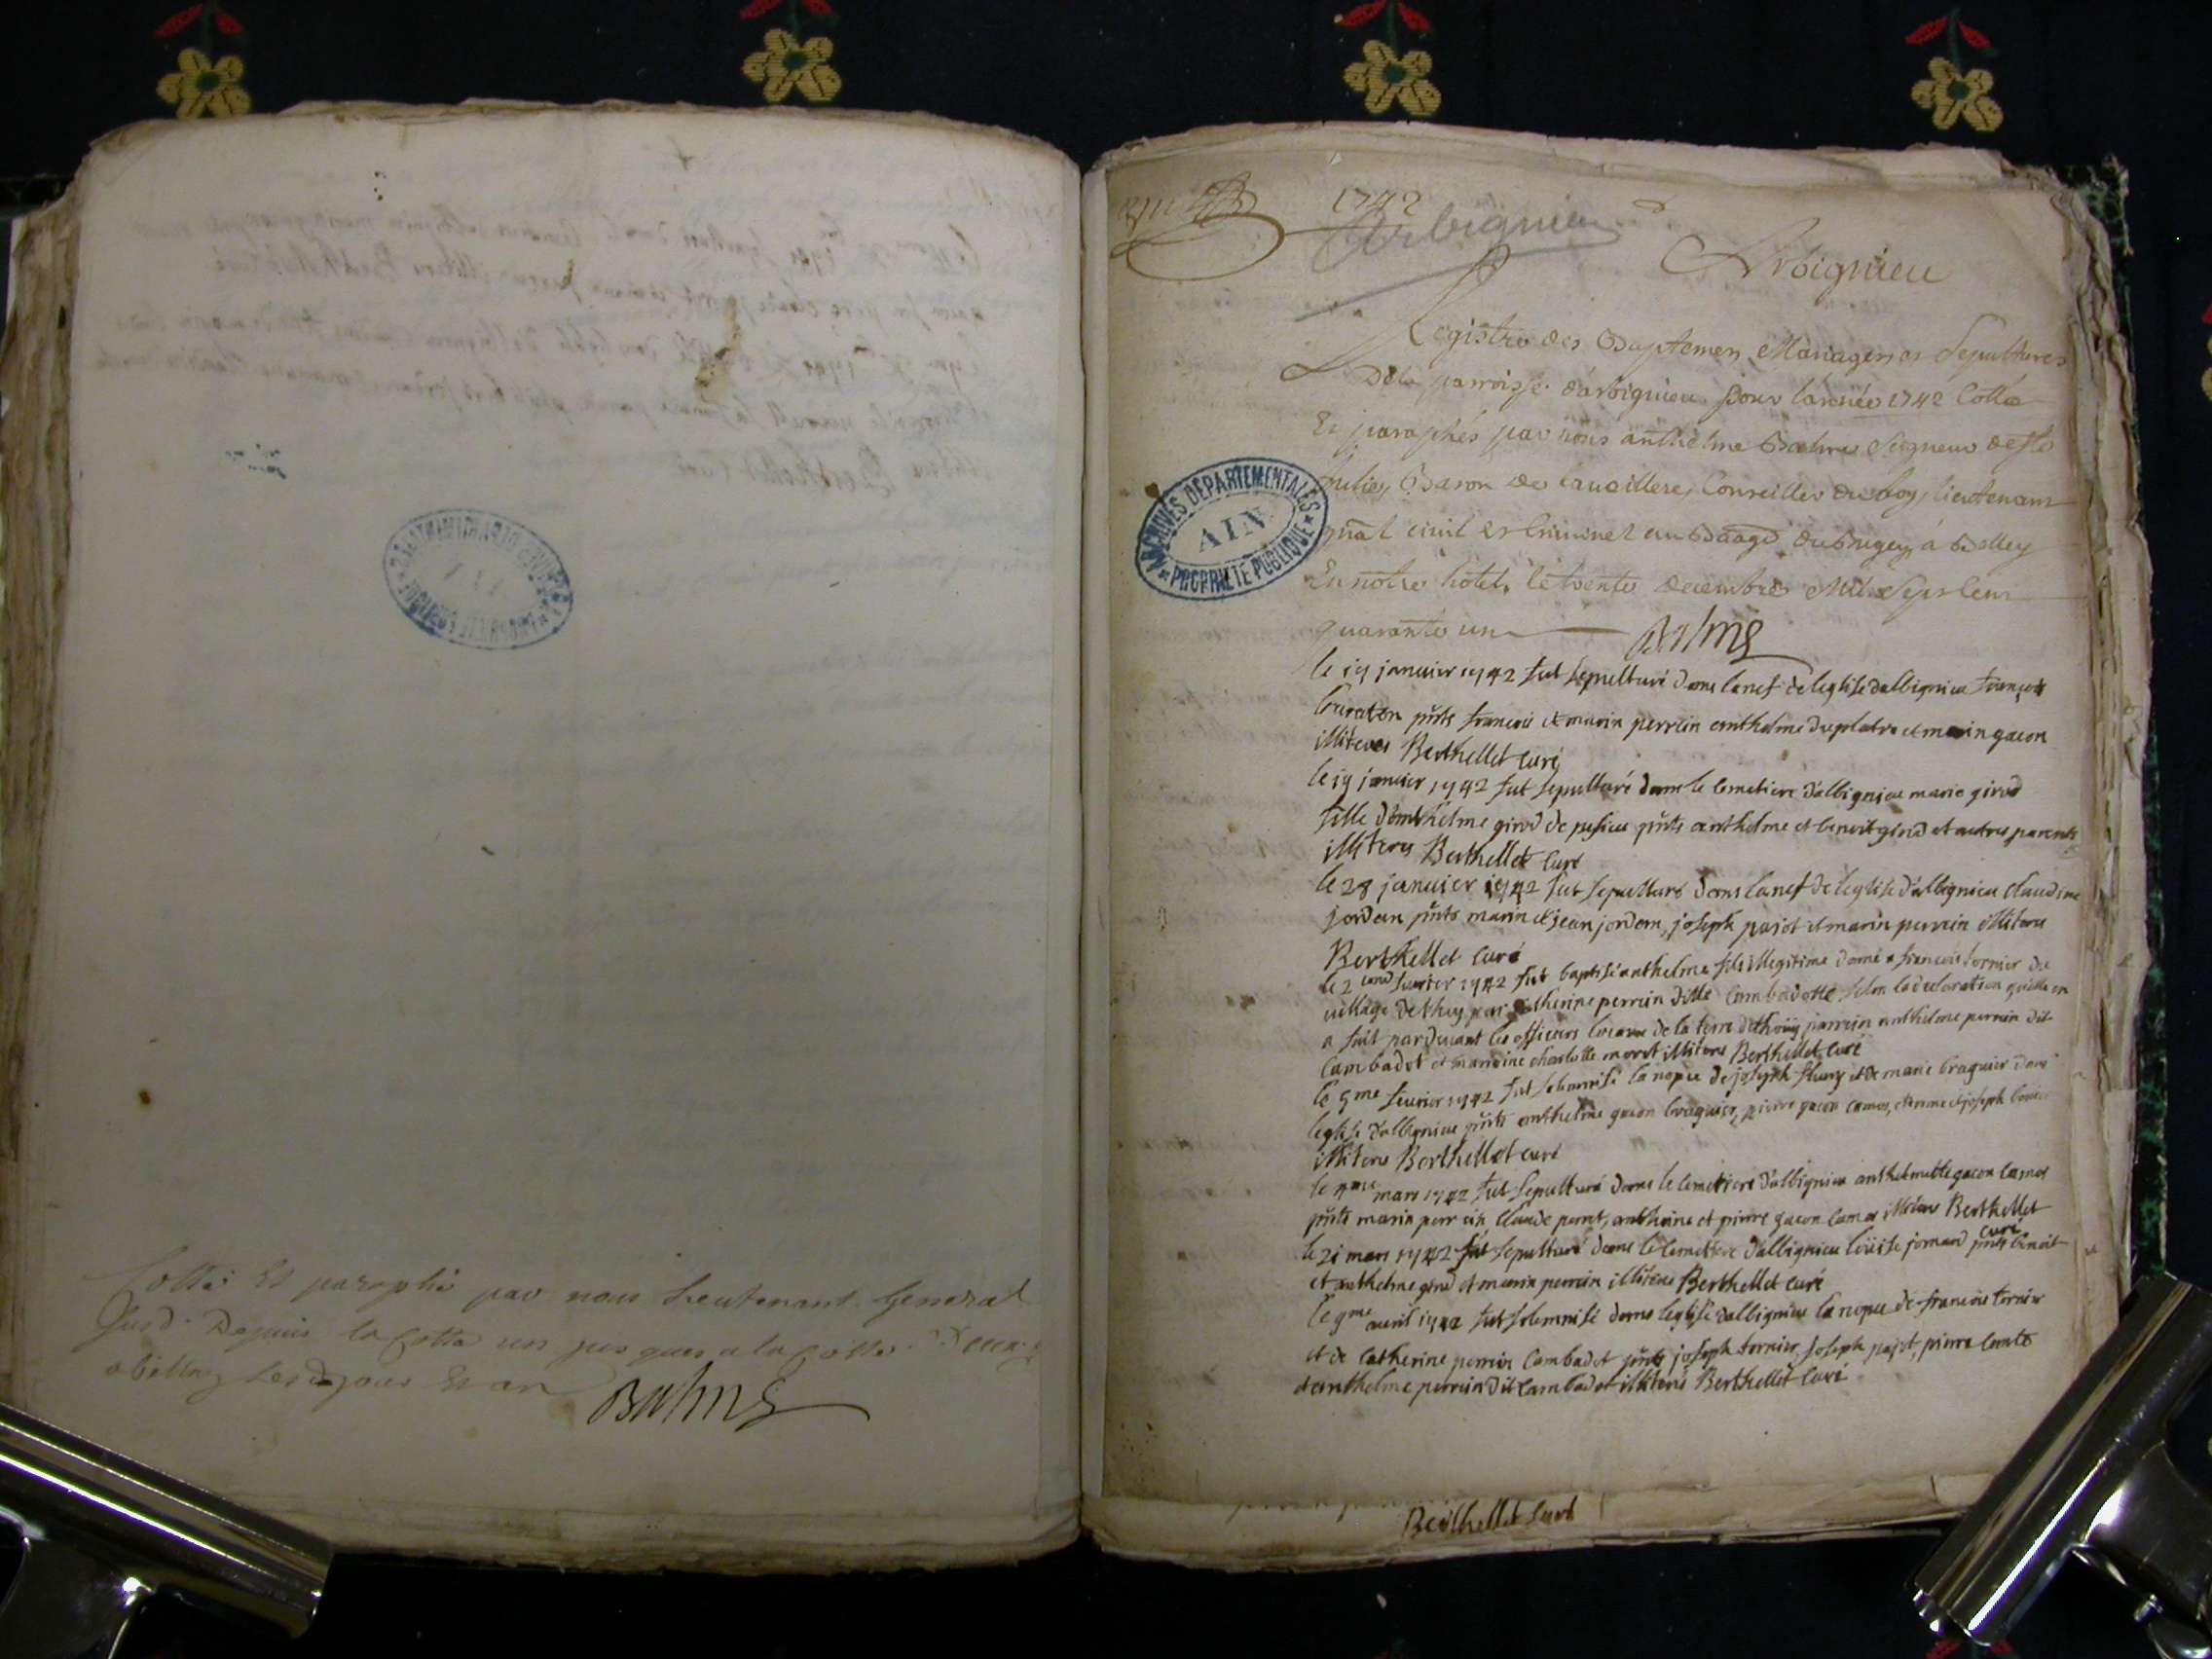 Cotté Et paraphé par nous Lieutenant General
Jusd. Depuis la Cotte un jusques a la Cotte
a belley lesd jour Et an
Balme
1742
Arbignieu
Arbignieu
Registre des Baptemes, Mariages et Sepultures
De la parroisse d'arbignieu pour l'année 1742 Cotté
Et paraphés par nous anthelme Balme Seigneur de Ste
Julie, Baron de Conseiller du Roy, lieutenant
gñal civil et Criminel au Baage du Bugey, á Belley
En notre hôtel, le trente decembre Mil Sept Cent
quarante un
Balme
ARCHIVES DÉPARTEMENTALES
AIN
PROPRIÉTÉ PUBLIQUE
le 19 janvier 1742 fut sepulturé dans la nef de leglise dalbignieu françois
pñts francois et marin perrin anthelme duplatre et marin gacon
illiteres Berthellet curé
le 19 janvier 1742 fut sepulturé dans le cemetiere d'albignieu marie girod
fille d'anthelme girod de pñts anthelme et benoit girod et autres parents
illiteres Berthellet curé
le 28 janvier 1742 fut sepulturé dans la nef de leglise d'albignieu claudine
jordan pñts marin et jean jordan, joseph pajot et marin perrin illiteres
Berthellet curé
le 2cond fevrier 1742 fut baptisé anthelme fils illegitime donné a francois tornier du
village de thuy par catherine perrin ditte cambadotte selon la declaration quelle en
a fait pardevant les officiers locaux de la terre de thoüy parrein anthelme perrein dit
cambadot et marraine charlotte moret illiteres Berthellet curé
le 5me fevrier 1742 fut solemnisé la nopce de joseph fleury et de marie braguier dans
leglise d'albignieu pñts anthelme gacon braguier, pierre gacon camos, et joseph
illiteres Berthellet curé
le 4me mars 1742 fut sepulturé dans le cemetiere d'albignieu anthelmette gacon camos
pñts marin perrein, claude perret, anthoine et pierre gacon camos illiteres Berthellet
curé
le 21 mars 1742 fut sepulturé dans le cemetiere d'albignieu loüise jornand pñts benoit
et anthelme girod et marin perrein illiteres Berthellet curé
le 9me avril 1742 fut solemnisé dans leglise d'albignieu la nopce de francois tornier
et de catherine perrein cambadot pñts joseph tornier, joseph pajot, pierre comte
et anthelme perrein dit cambadot illiteres Berthellet curé
Berthellet curé